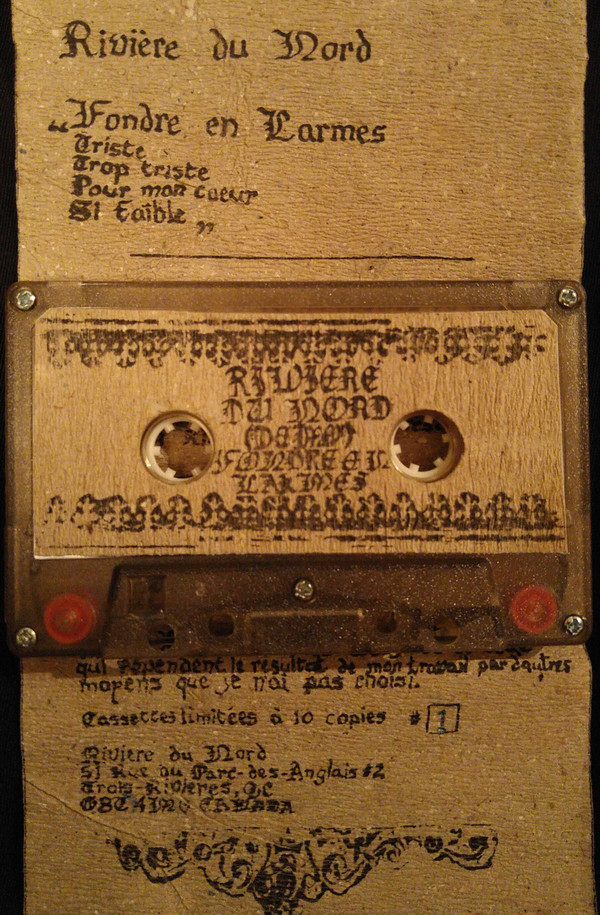 Rivière du Nord
„Fondre en Larmes
Triste
Trop triste
Pour mon coeur
Si faible”
RIVIERE
DU NORD
(DEMO)
FONDRE EN
LARMES
qui rependent le resultat de mon travail par d'autres
moyens que je n'ai pas choisi.
Cassettes limitées à 10 copies #1
Rivière du Nord
51 Rue du Parc-des-Anglais #2
Trois-Rivières, QC
CANADA